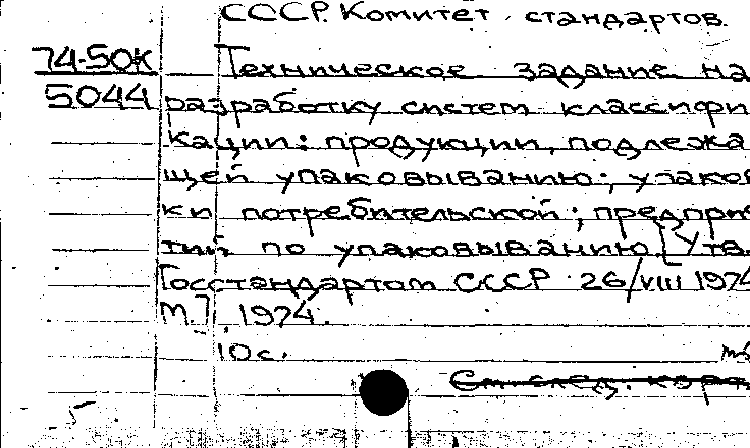 СССР. Комитет стандартов.
74-50К
5044
Техническое задание на
разработку систем классифи
кации: продукции, подлежа
щей упаковыванию; упаков
ки потребительской; предприя
тий по упаковыванию. [Утв.
Госстандартом СССР 26/VIII 1974
М.], 1974.
10 с.
См. след. карт